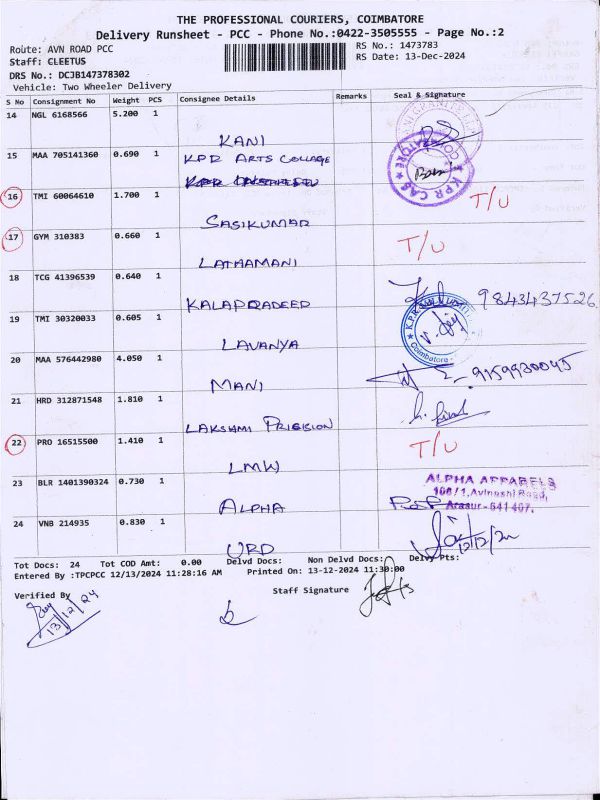 THE PROFESSIONAL COURIERS, COIMBATORE
Delivery Runsheet - PCC - Phone No.:0422-3505555 - Page No.:2
Route: AVN ROAD PCC
RS No.: 1473783
Staff: CLEETUS
RS Date: 13-Dec-2024
DRS No.: DCJB147378302
Vehicle: Two Wheeler Delivery
S No Consignment No Weight PCS Consignee Details Remarks Seal & Signature
14 NGL 6168566 5.200 1
KANI
15 MAA 705141360 0.690 1 KPR ARTS COLLAGE
KPR CAS
16 TMI 60064610 1.700 1 T/U
SASIKUMAR
17 GYM 310383 0.660 1 T/U
LATHAMANI
18 TCG 41396539 0.640 1 9843437526
KALAPRADEEP
19 TMI 30320033 0.605 1
Coimbatore
LAVANYA
20 MAA 576442980 4.050 1 9159930045
MANI
21 HRD 312871548 1.810 1
LAKSHMI PRICISION
22 PRO 16515500 1.410 1 T/U
LMW
23 BLR 1401390324 0.730 1 ALPHA APPARELS
106/1, Avinashi Road,
Arasur - 641 407.
ALPHA
24 VNB 214935 0.830 1
URD
Tot Docs: 24 Tot COD Amt: 0.00 Delvd Docs: Non Delvd Docs: Delvy Pts:
Entered By :TPCPCC 12/13/2024 11:28:16 AM Printed On: 13-12-2024 11:30:00
Verified By
Staff Signature
13/12/24